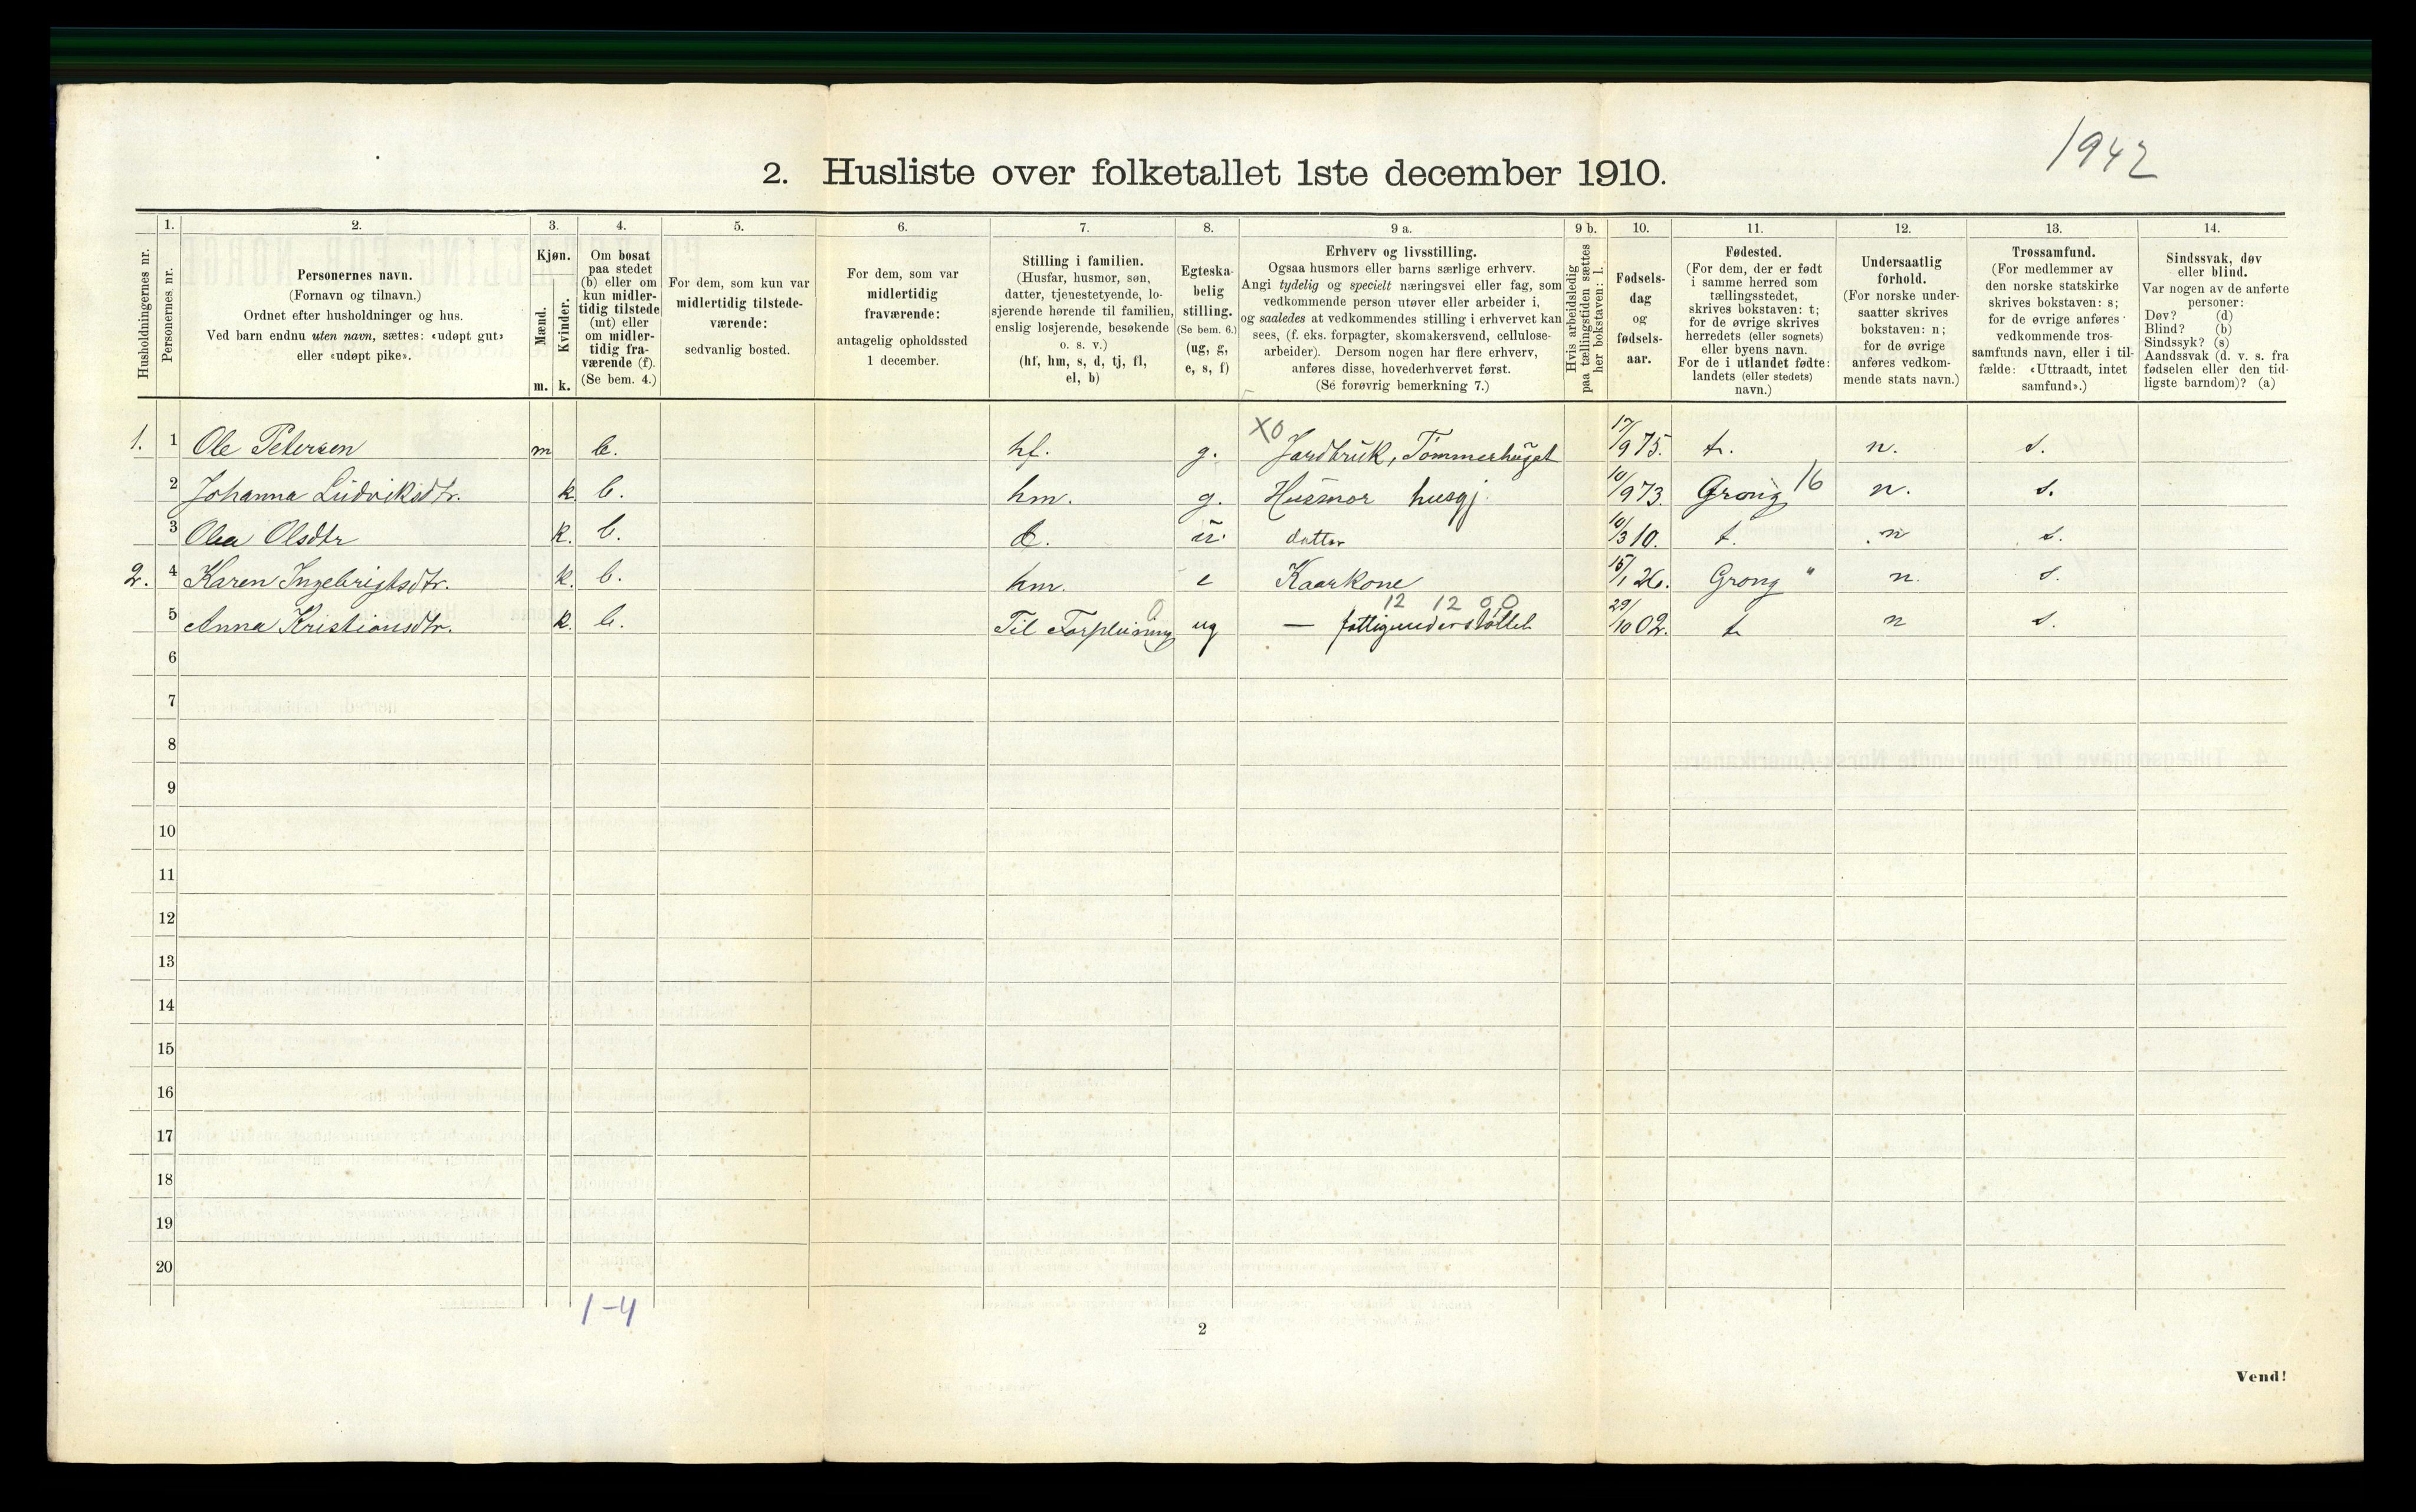 1942
2. Husliste over folketallet 1ste december 1910.
1. 2. 3. 4. 5. 6. 7. 8. 9 a. 9 b. 10. 11. 12. 13. 14.
Husholdningernes nr.
Personernes nr.
Personernes navn.
(Fornavn og tilnavn.)
Ordnet efter husholdninger og hus.
Ved barn endnu uten navn, sættes: «udøpt gut»
eller «udøpt pike».
Kjøn.
Mænd.
Kvinder.
m. k.
Om bosat
paa stedet
(b) eller om
kun midler-
tidig tilstede
(mt) eller
om midler-
tidig fra-
værende (f).
(Se bem. 4.)
For dem, som kun var
midlertidig tilstede-
værende:
sedvanlig bosted.
For dem, som var
midlertidig
fraværende:
antagelig opholdssted
1 december.
Stilling i familien.
(Husfar, husmor, søn,
datter, tjenestetyende, lo-
sjerende hørende til familien,
enslig losjerende, besøkende
o. s. v.)
(hf, hm, s, d, tj, fl,
el, b)
Egteska-
belig
stilling.
(Se bem. 6.)
(ug, g,
e, s, f)
Erhverv og livsstilling.
Ogsaa husmors eller barns særlige erhverv.
Angi tydelig og specielt næringsvei eller fag, som
vedkommende person utøver eller arbeider i,
og saaledes at vedkommendes stilling i erhvervet kan
sees, (f. eks. forpagter, skomakersvend, cellulose-
arbeider). Dersom nogen har flere erhverv,
anføres disse, hovederhvervet først.
(Se forøvrig bemerkning 7.)
Hvis arbeidsledig
paa tællingstiden sættes
her bokstaven: l.
Fødsels-
dag
og
fødsels-
aar.
Fødested.
(For dem, der er født
i samme herred som
tællingsstedet,
skrives bokstaven: t;
for de øvrige skrives
herredets (eller sognets)
eller byens navn.
For de i utlandet fødte:
landets (eller stedets)
navn.)
Undersaatlig
forhold.
(For norske under-
saatter skrives
bokstaven: n;
for de øvrige
anføres vedkom-
mende stats navn.)
Trossamfund.
(For medlemmer av
den norske statskirke
skrives bokstaven: s;
for de øvrige anføres
vedkommende tros-
samfunds navn, eller i til-
fælde: «Uttraadt, intet
samfund».)
Sindssvak, døv
eller blind.
Var nogen av de anførte
personer:
Døv? (d)
Blind? (b)
Sindssyk? (s)
Aandssvak (d. v. s. fra
fødselen eller den tid-
ligste barndom)? (a)
X0
1. 1 Ole Petersen m b. hf. g. Jordbruk, Tømmerhugst 17/9 75. t. n. s.
2 Johanna Ludviksdtr. k. b. hm. g. Husmor husgj. 10/9 73. Grong 16 n. s.
3 Olea Olsdtr k. b. d. u. datter 10/3 10. t. n s.
2. 4 Karen Ingebrigtsdtr. k. b. hm. e Kaarkone 15/1 26. Grong " n. s.
0 12 12 0 0
5 Anna Kristiansdtr. k. b. Til Forpleining ug — fattigunderstøttet 29/10 02. t n s.
6
7
8
9
10
11
12
13
14
15
16
17
18
19
20
1-4
2
Vend!